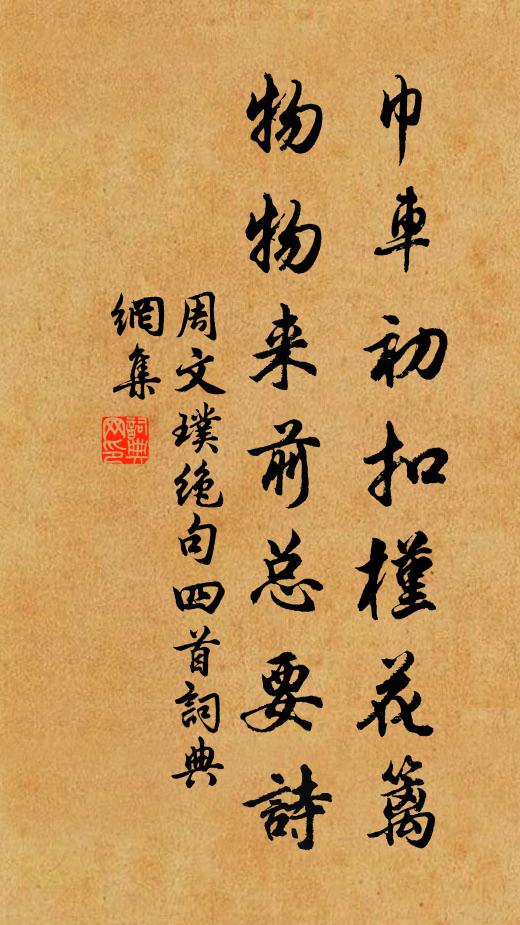 巾車初扣槿花篱
物物来前总要詩
周文璞绝句四首詞典
網集
詞典网印